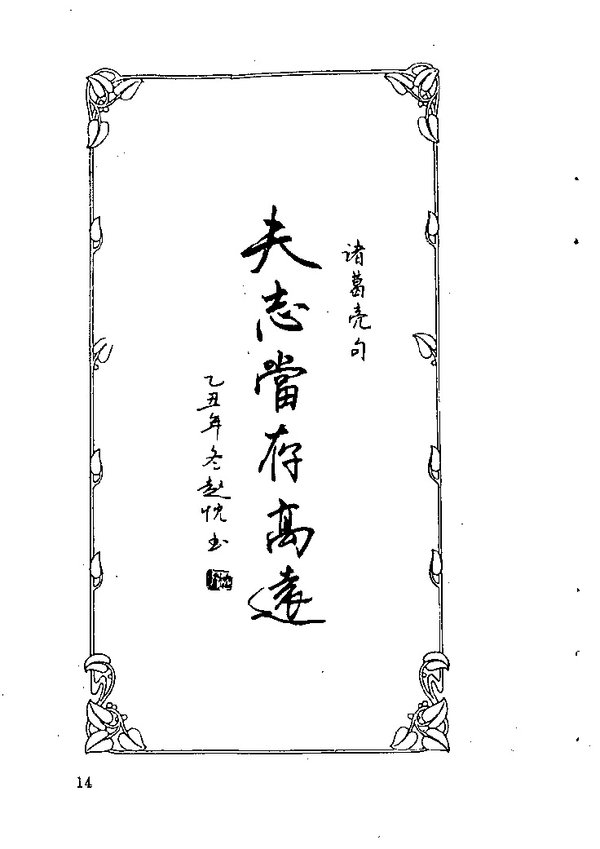 诸葛亮句
夫志當存高遠
乙丑年冬赵忱书
14